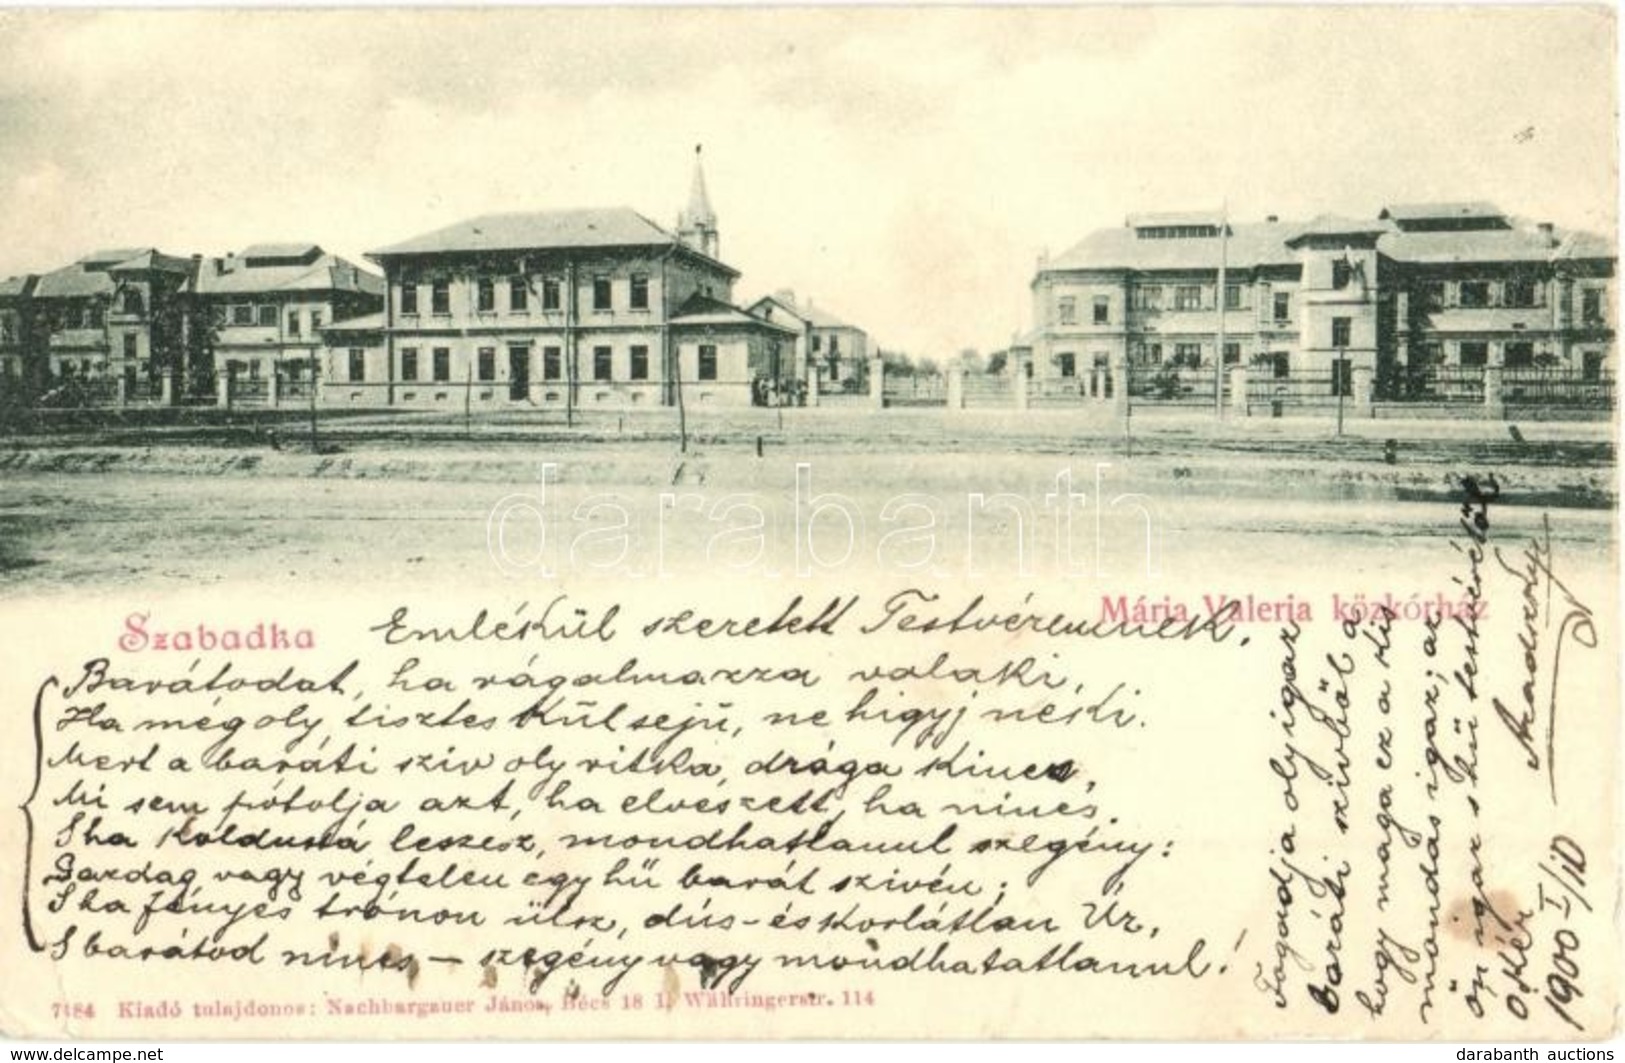 darabanth
Szabadka
Mária Valeria közkórház
Emlékül szeretett Testvéremnek.
Barátodat, ha rágalmazza valaki,
Ha mégoly tisztes külsejű, ne higyj néki.
Mert a baráti sziv oly ritka, drága kincs,
Mi sem pótolja azt, ha elveszett, ha nincs.
S ha koldussá leszesz, mondhatlanul szegény:
Gazdag vagy végtelen egy hű barát szivén;
S ha fényes trónon ülsz, dús- és korlátlan Úr,
S barátod nincs — szegény vagy mondhatatlanul!
Fogadja oly igaz
baráti szivből a
hogy maga ez a kis
mondás igaz; az
ön igaz s hű testvérétől
Ókér
1900 I/10
7184 Kiadó tulajdonos: Nachbargauer János, Bécs 18 I. Währingerstr. 114
darabanth auctions
www.delcampe.net